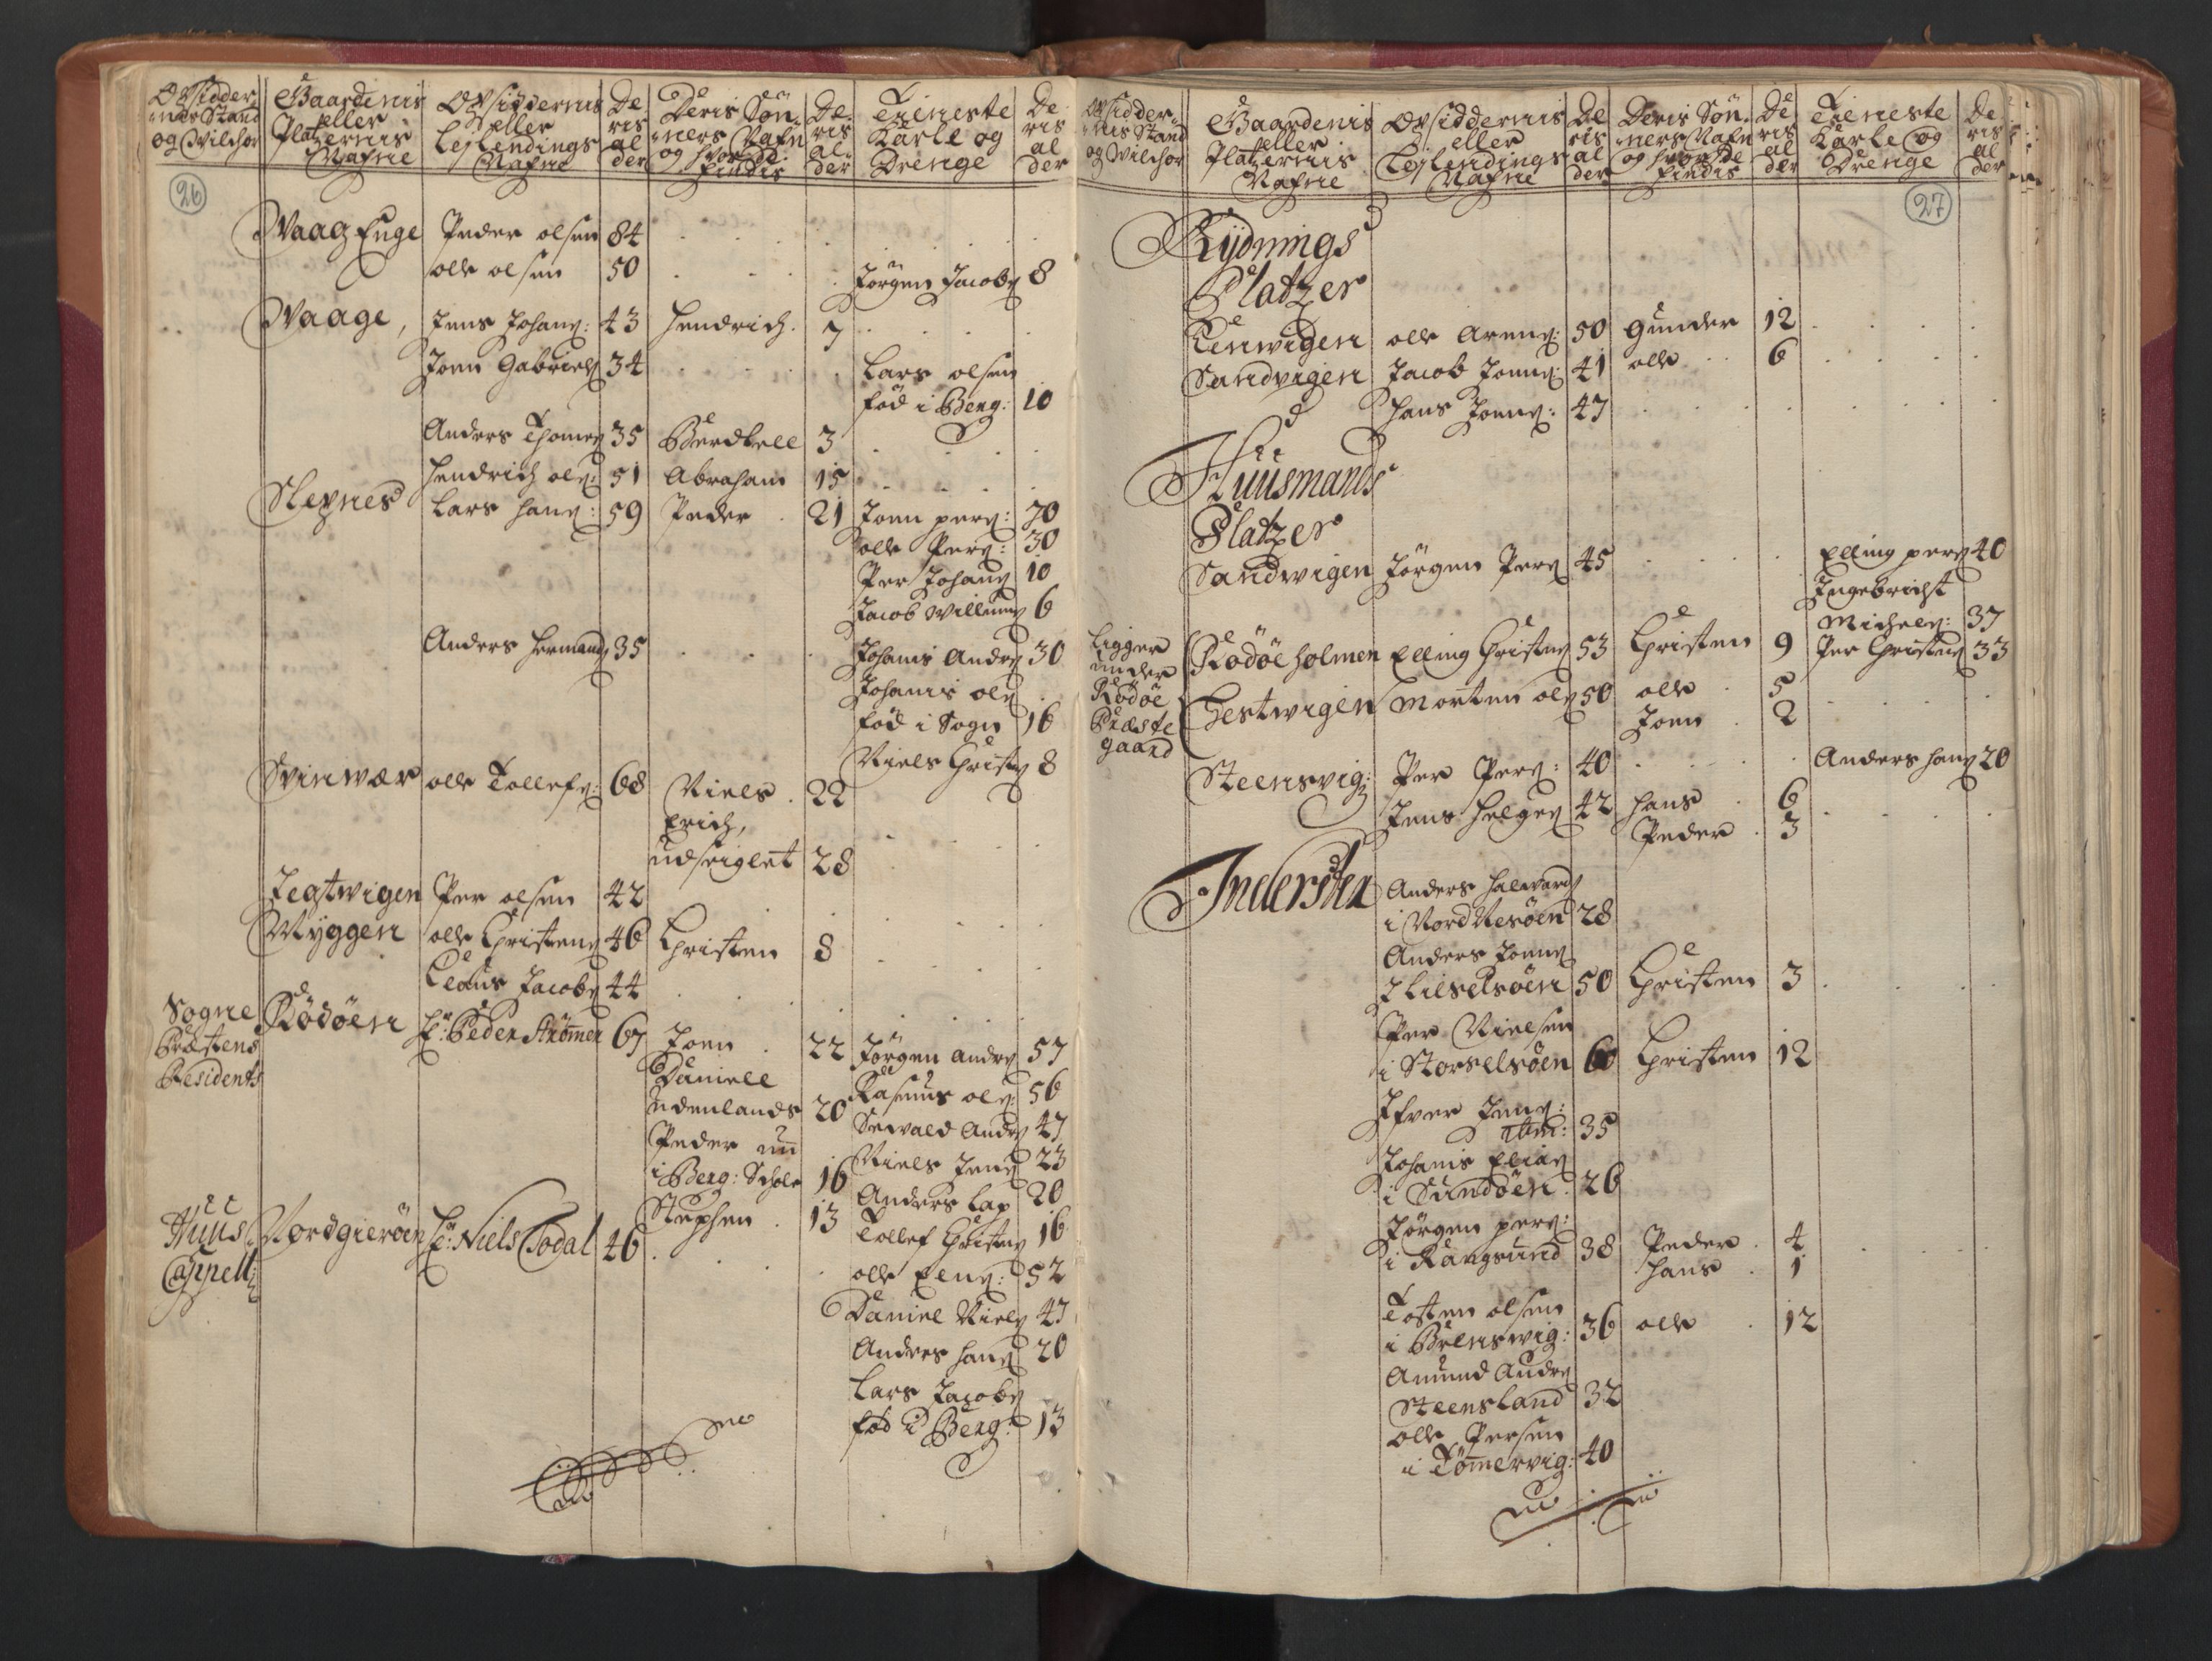 Opsidder
nes Stand
og Wilchor
Gaardenis
eller
Platzernis
Nafne
Opsiddernis
eller
Lejlendings
Nafne
De
ris
al
der
Deris Søn
ners Nafn
og hvor de
findis
De
ris
al
der
Tieneste
Karle og
Drenge
De
ris
al
der
26
Waag Enge Peder olsen 84
olle olsen 50 Jørgen Jacobs 8
Waage, Jens Johans: 43 Hendrich 7
Joen Gabriels 34 Lars olsen
fød i Berg: 10
Anders Thomes 35 3
Hendrich ols: 51 Abraham 15
Slepnes Lars Hans: 59 Peder 21 Joen pers: 70
olle Pers: 30
Per Johans 10
Jacob Willums 6
Anders Hermands 35 Johanis Andrs 30
Johanis ols
fød i Sogn 16
Niels Christs 8
Svinwær olle Tollefs: 68 Niels 22
Erich,
udseiglet 28
Jegtwigen Per olsen 42
Myggen olle Christens 46 Christen 8
Claus Jacobs 44
Sogne
Præstens
Residents
Rødøen Hr: Peder Strømer 67 Joen 22 Jørgen Andrs 57
Daniell
udenlands 20 Rasmus ols: 56
Sewald Andrs 47
Peder nu
i Berg: Schole 16 Niels Jens 23
Stephen 13 Anders Lap 20
Tollef Christs 16
Huus
Cappell:
Nordgierøen Hr: Niels Todal 46
olle Elens: 52
Daniel Niels 47
Anders Hans 20
Lars Jacobs
fød i Berg: 13
Opsidder
nes Stand
og Wilchor
Gaardenis
eller
Platzernis
Nafne
Opsiddernis
eller
Lejlendings
Nafne
De
ris
al
der
Deris Søn
ners Nafn
og hvor de
findis
De
ris
al
der
Tieneste
Karle og
Drenge
De
ris
al
der
27
Rydnings
Platzer
Lenwigen olle Arens: 50 Gunder 12
Sandvigen Jacob Joens: 41 olle 6
Hans Joens: 47
Huusmands
Platzer
Sandwigen Jørgen Pers 45 Elling pers 40
Ingebricht
Michels: 37
Ligger
under
Rødøe
Præste
gaard
Rødøeholmen Elling Christens 53 Christen 9 Per Christens 33
Hestwigen Morten ols 50 olle 5
Joen 2
Steensvig: Per Pers: 40 Anders Hans 20
Jens Helges 42 Hans 6
Peder 3
Inderster Anders Halwards
i Nord Nesøen 28
Anders Joens
i Lilselsøen 50 Christen 3
Per Nielsen
i Storselsøen 60 Christen 12
Ifver Jens:
ibm: 35
Johanis Elias
i Sundøen 26
Jørgen pers:
i Rangsund 38 Peder 4
Hans 1
Tosten olsen
i Brenswig: 36 olle 12
Amund Andrs
Steensland 32
olle Persen
i Tømervig: 40